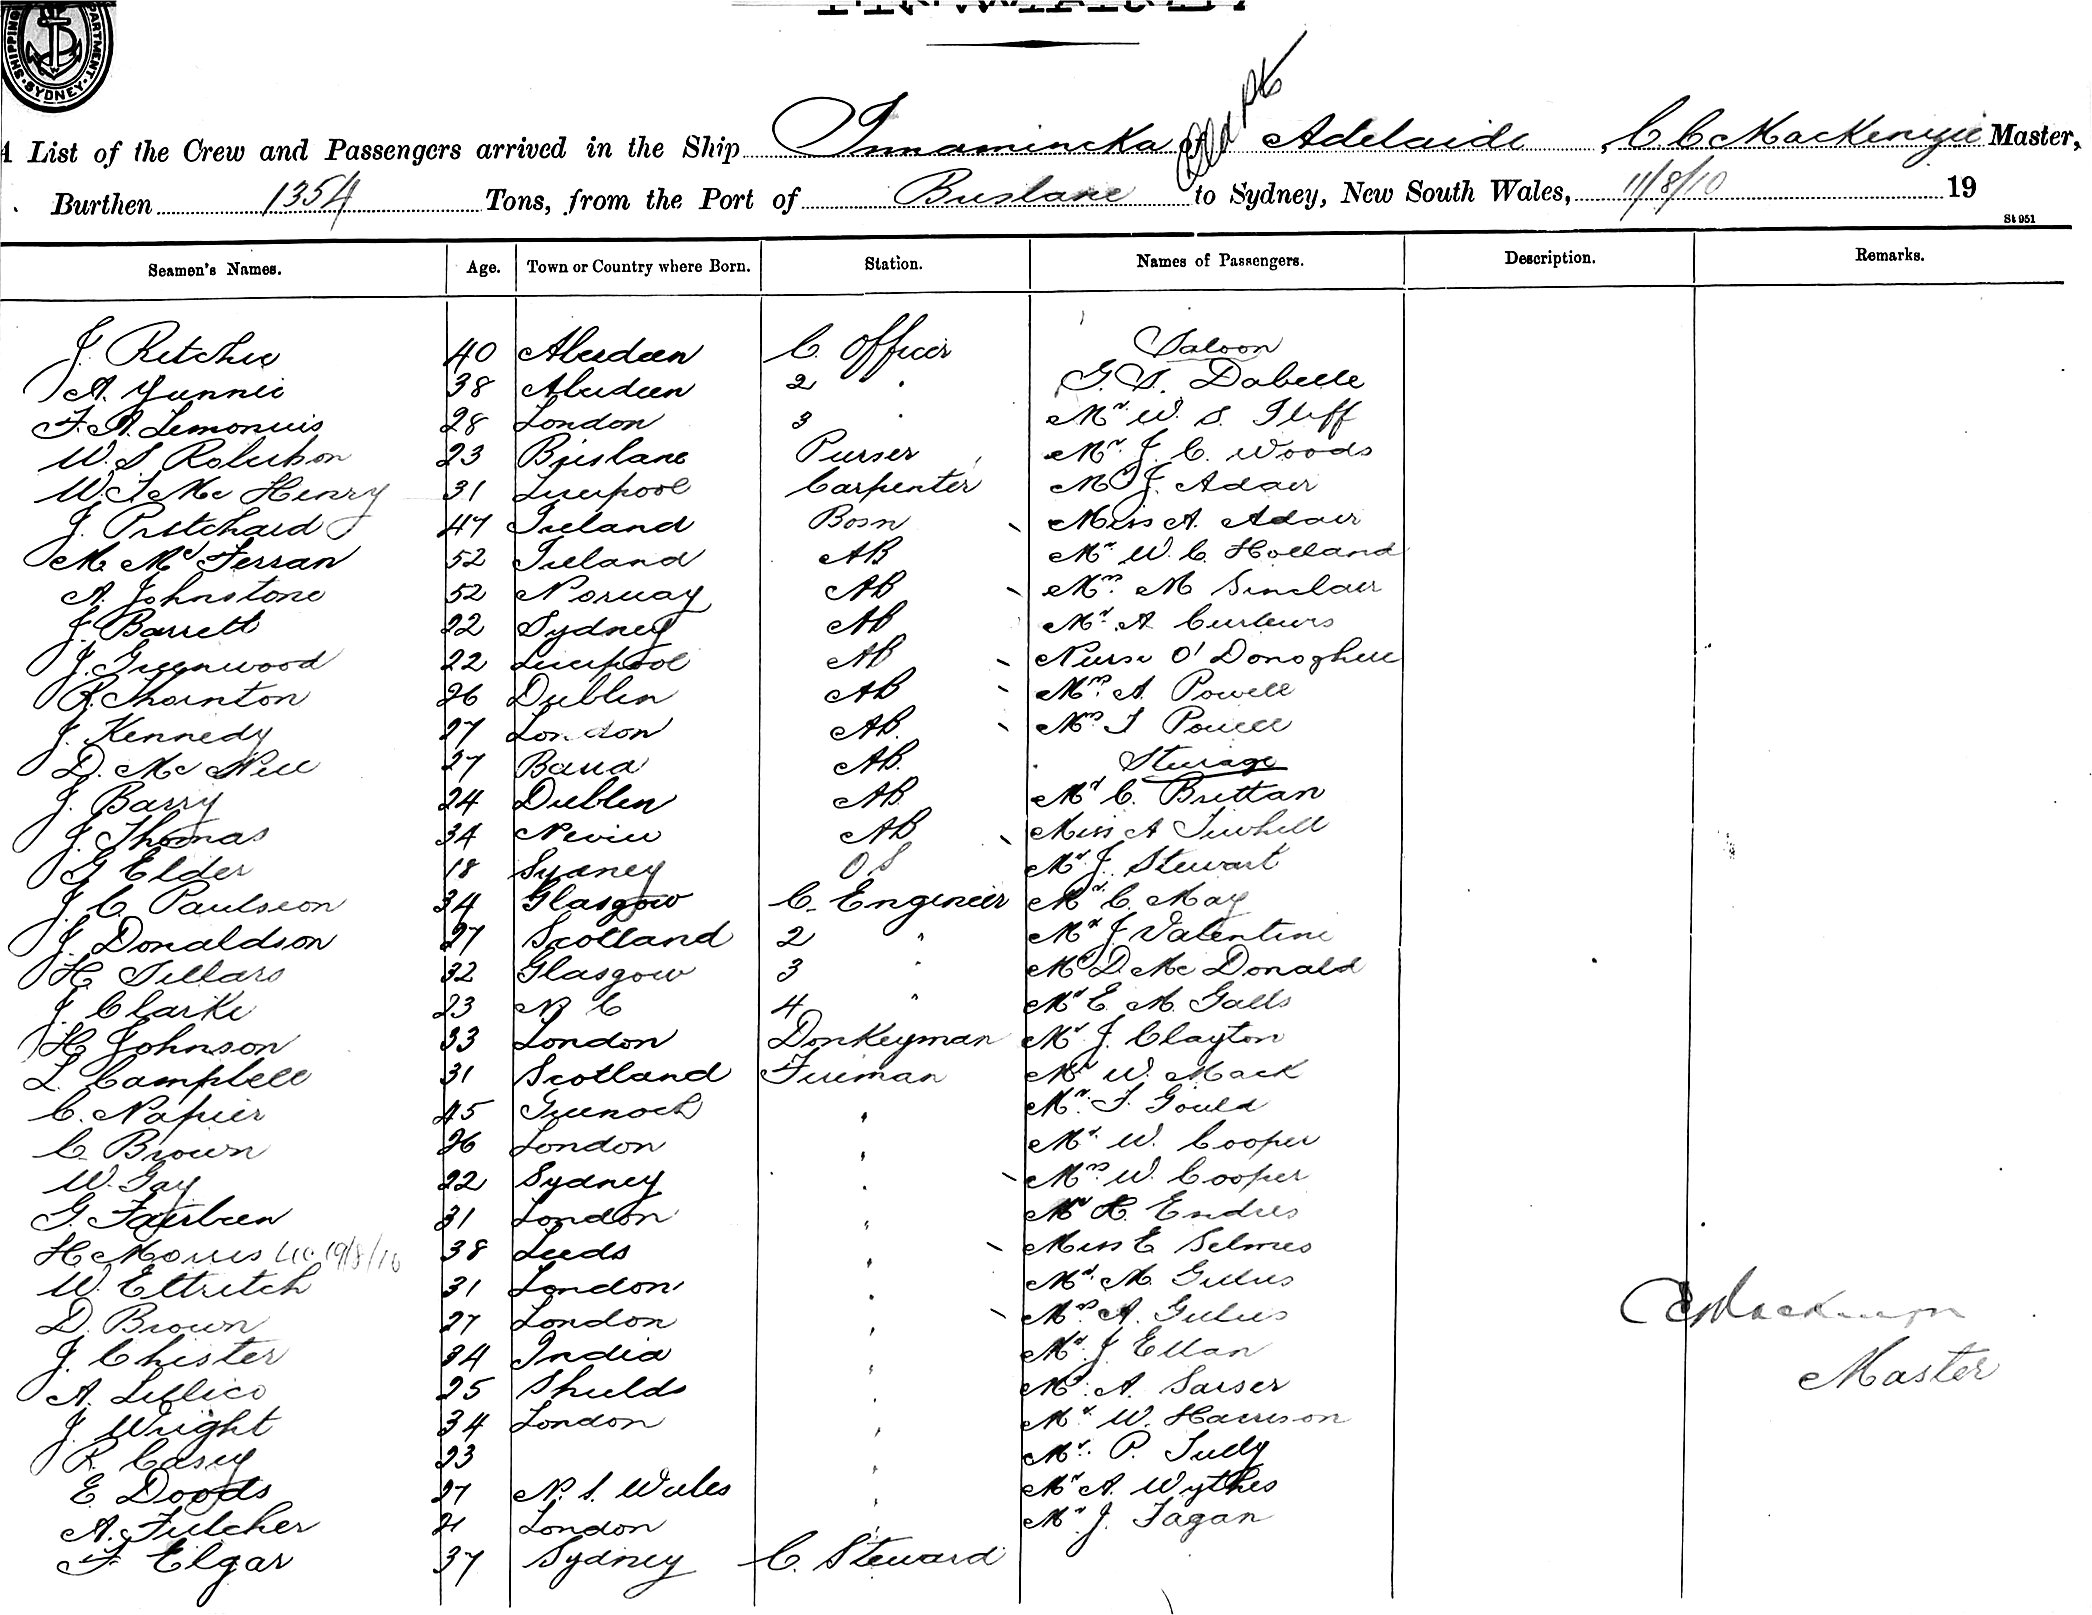 SHIPPING DEPARTMENT SYDNEY
A List of the Crew and Passengers arrived in the Ship Innamincka of Adelaide, C C MacKenzie Master,
Burthen 1354 Tons, from the Port of Brisbane to Sydney, New South Wales, 11/8/10 19
St 951
Seamen's Names. Age. Town or Country where Born. Station. Names of Passengers. Description. Remarks.
J. Ritchie 40 Aberdeen C. Officer Saloon
A. Yunnie 38 Aberdeen 2 " G. S. Dabelle
F. A. Lemonius 28 London 3 " Mr W. S. Iliff
W. S Robertson 23 Brisbane Purser Mr. J. C. Woods
W. J. Mc Henry 31 Liverpool Carpenter Mr J. Adair
J. Pritchard 47 Ireland Bosn Miss A. Adair
M Mc Ferran 52 Ireland AB Mr W. C. Holland
A. Johnstone 52 Norway AB Mrs M Sinclair
J. Barrett 22 Sydney AB Mr A Curlewis
J. Greenwood 22 Liverpool AB Nurse O'Donoghue
R. Thornton 26 Dublin AB Mrs A. Powell
J. Kennedy 27 London AB. Mrs J Powell
D. Mc Neill 27 Barra AB. Steerage
J. Barry 24 Dublin AB Mr C. Brittan
J. Thomas 34 Nevin AB Miss A
G Elder 18 Sydney O S Mr J. Stewart
J. C. Paulseon 34 Glasgow C. Engineer Mr C. May
J. Donaldson 27 Scotland 2 " Mr J Valentine
H Sillars 32 Glasgow 3 " Mr D. Mc Donald
J. Clarke 23 N C 4 " Mr E. M. Galls
H Johnson 33 London Donkeyman Mr J. Clayton
L. Campbell 31 Scotland Fireman Mr W. Mack
C. Napier 45 Greenock " Mr. F. Gould
C. Brown 26 London " Mr. W. Cooper
W. Gay 22 Sydney " Mrs W. Cooper
G. Fairbeen 31 London " Mr H. Endres
H Morris 19/8/10 38 Leeds " Miss E Selmes
W. Ettritch 31 London " Mr. M.
D. Brown 27 London " Mrs A. CMackenzie
J. Chister 34 India " Mr. J Ellan Master
A. Lillico 25 Shields " Mr. A. Sarser
J. Wright 34 London " Mr W. Harrison
R. Casey 23 " Mr. P. Tully
E Doods 27 N. S. Wales " Mr A. Wythes
A. Fulcher 21 London " Mr. J. Fagan
F Elgar 37 Sydney C. Steward